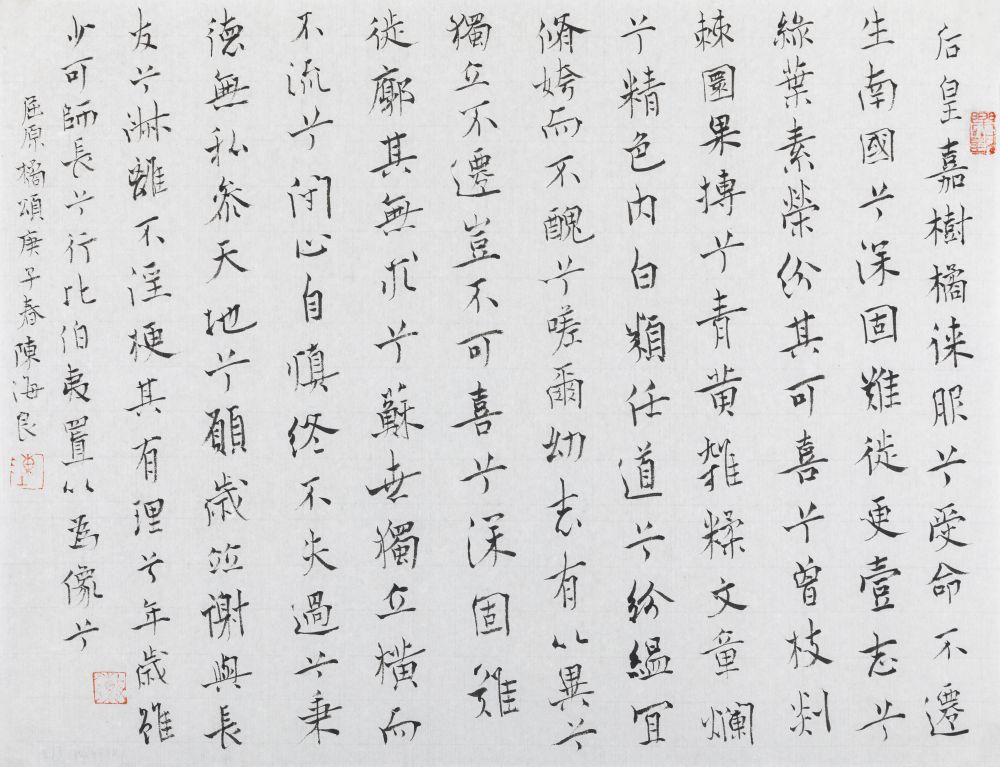 后皇嘉樹橘徠服兮受命不遷
生南國兮深固難徙更壹志兮
綠葉素榮紛其可喜兮曾枝剡
棘圓果摶兮青黃雜糅文章爛
兮精色內白類任道兮紛緼宜
脩姱而不醜兮嗟爾幼志有以異兮
獨立不遷豈不可喜兮深固難
徙廓其無求兮蘇世獨立橫而
不流兮閉心自慎終不失過兮秉
德無私參天地兮願歲竝謝與長
友兮淋離不淫梗其有理兮年歲雖
少可師長兮行比伯夷置以為像兮
屈原橘頌庚子春陳海良